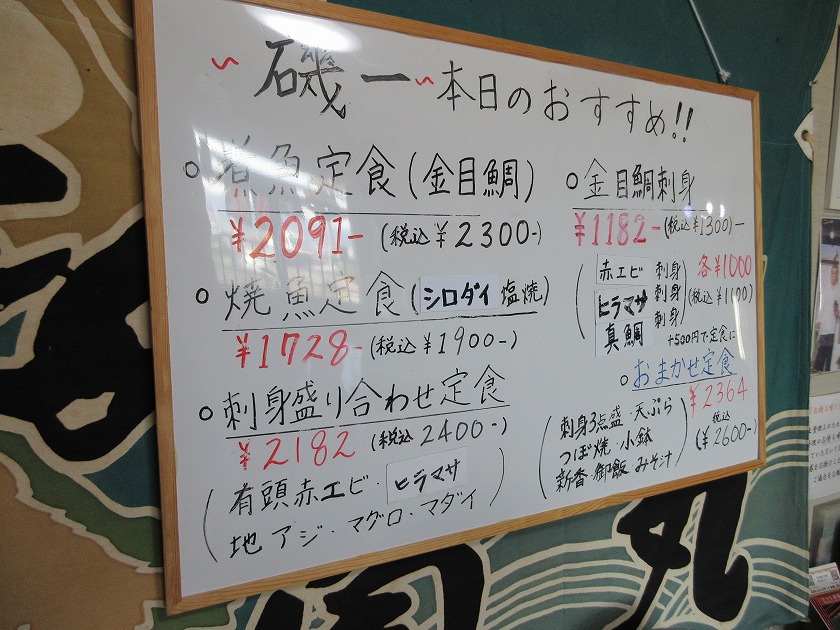 ～磯一～本日のおすすめ!!
○煮魚定食(金目鯛)
¥2091-(税込¥2300-)
○焼魚定食(シロダイ塩焼)
¥1728-(税込¥1900-)
○刺身盛り合わせ定食
¥2182(税込2400-)
(有頭赤エビ・ヒラマサ
地アジ・マグロ・マダイ)
○金目鯛刺身
¥1182-(税込¥1300)-
(赤エビ刺身
ヒラマサ刺身
真鯛刺身)
各¥1000
(税込¥1100)
+500円で定食に
○おまかせ定食
¥2364
税込
(¥2600-)
(刺身3点盛・天ぷら
つぼ焼・小鉢
新香・御飯 みそ汁)
丸